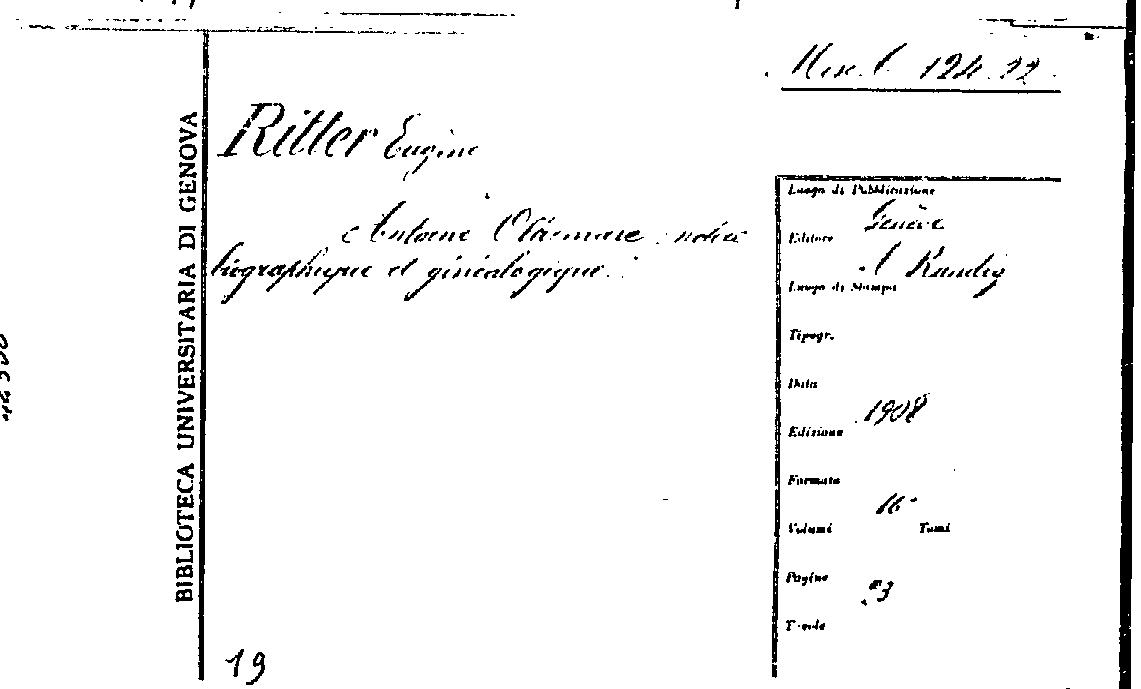 Misc. C 124. 22.
BIBLIOTECA UNIVERSITARIA DI GENOVA
Ritter Eugène
Antoine : notice
biographique et généalogique.
Luogo di Pubblicazione
Genève
Editore
Kündig
Luogo di Stampa
Tipogr.
Data
1908
Edizione
Formato
16°
Volumi Tomi
Pagine
23
Tavole
19